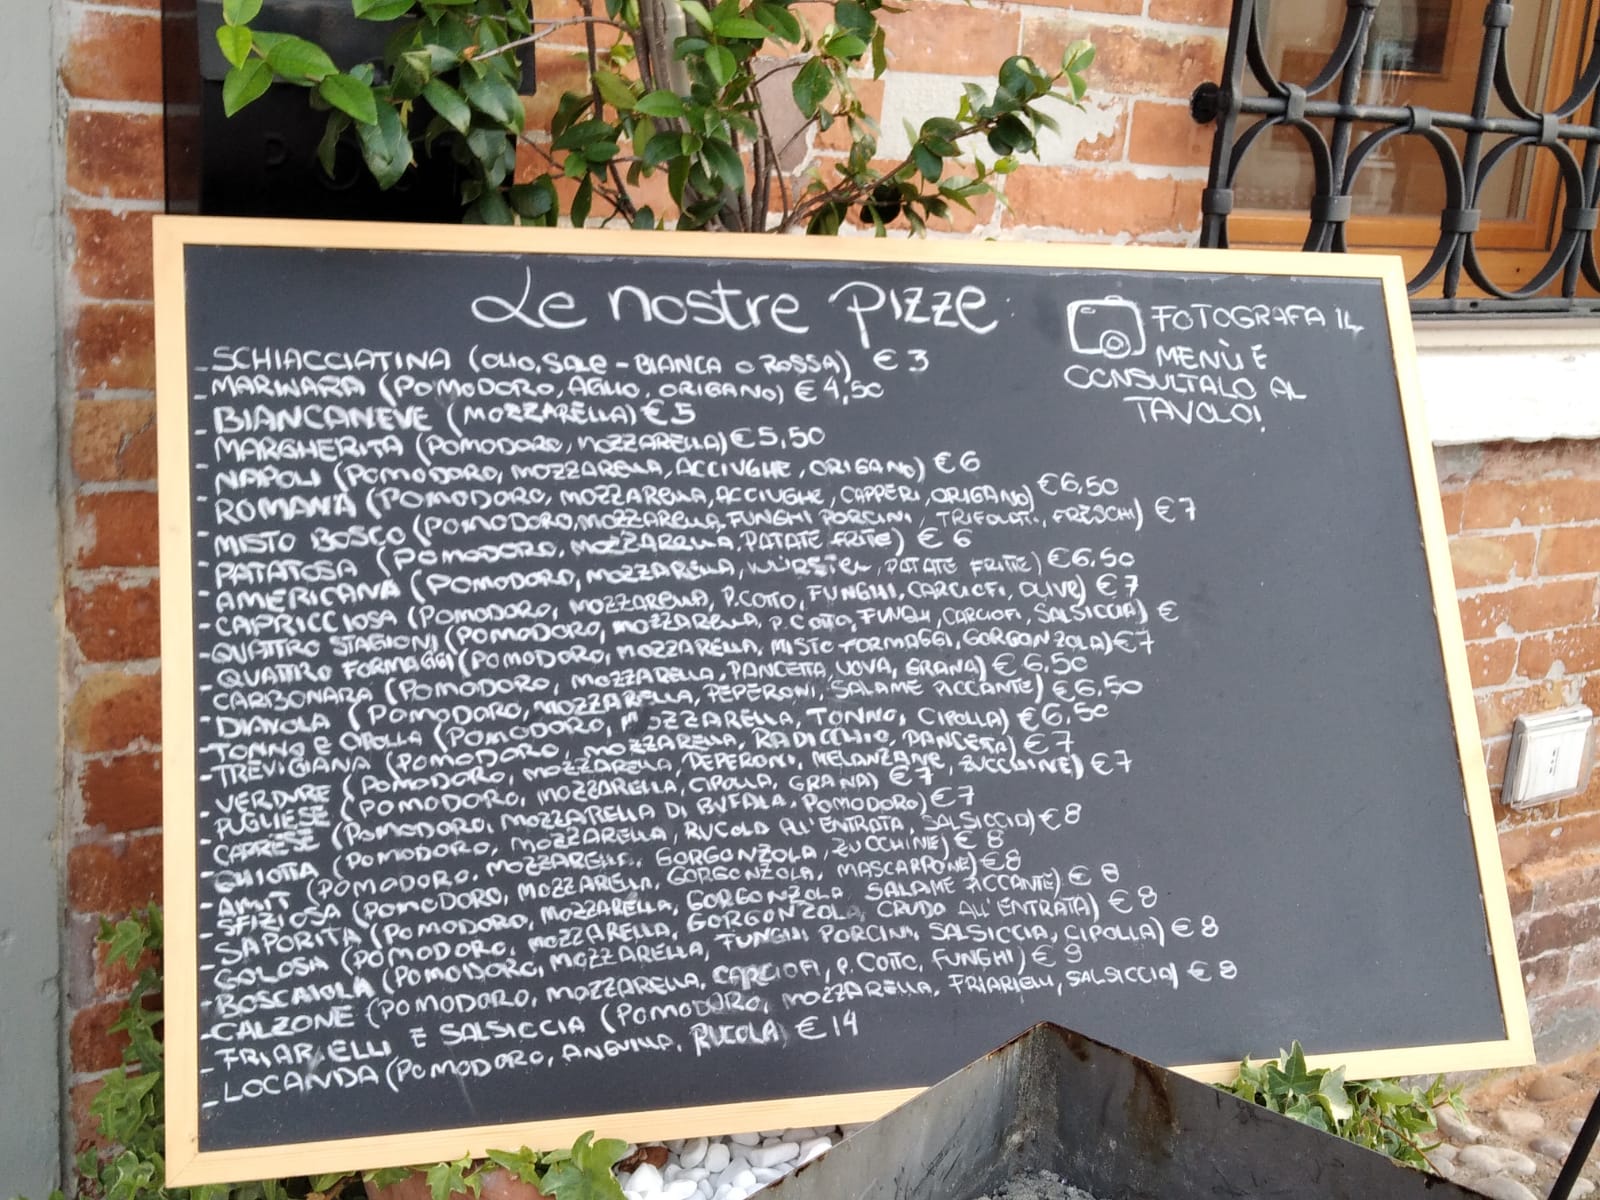 POST
Le nostre pizze
FOTOGRAFA IL
MENÙ E
CONSULTALO AL
TAVOLO!
- SCHIACCIATINA (OLIO, SALE - BIANCA O ROSSA) € 3
- MARINARA (POMODORO, AGLIO, ORIGANO) € 4,50
- BIANCANEVE (MOZZARELLA) € 5
- MARGHERITA (POMODORO, MOZZARELLA) € 5,50
- NAPOLI (POMODORO, MOZZARELLA, ACCIUGHE, ORIGANO) € 6
- ROMANA (POMODORO, MOZZARELLA, ACCIUGHE, CAPPERI, ORIGANO) € 6,50
- MISTO BOSCO (POMODORO, MOZZARELLA, FUNGHI PORCINI, TRIFOLATI, FRESCHI) € 7
- PATATOSA (POMODORO, MOZZARELLA, PATATE FRITTE) € 6
- AMERICANA (POMODORO, MOZZARELLA, WÜRSTEL, PATATE FRITTE) € 6,50
- CAPRICCIOSA (POMODORO, MOZZARELLA, P.COTTO, FUNGHI, CARCIOFI, OLIVE) € 7
- QUATTRO STAGIONI (POMODORO, MOZZARELLA, P.COTTO, FUNGHI, CARCIOFI, SALSICCIA) €
- QUATTRO FORMAGGI (POMODORO, MOZZARELLA, MISTO FORMAGGI, GORGONZOLA) € 7
- CARBONARA (POMODORO, MOZZARELLA, PANCETTA, UOVA, GRANA) € 6,50
- DIAVOLA (POMODORO, MOZZARELLA, PEPERONI, SALAME PICCANTE) € 6,50
- TONNO E CIPOLLA (POMODORO, MOZZARELLA, TONNO, CIPOLLA) € 6,50
- TREVIGIANA (POMODORO, MOZZARELLA, RADICCHIO, PANCETTA) € 7
- VERDURE (POMODORO, MOZZARELLA, PEPERONI, MELANZANE, ZUCCHINE) € 7
- PUGLIESE (POMODORO, MOZZARELLA, CIPOLLA, GRANA) € 7
- CAPRESE (POMODORO, MOZZARELLA DI BUFALA, POMODORO) € 7
- GHIOTTA (POMODORO, MOZZARELLA, RUCOLA ALL'ENTRATA, SALSICCIA) € 8
- AMIT (POMODORO, MOZZARELLA, GORGONZOLA, ZUCCHINE) € 8
- SFIZIOSA (POMODORO, MOZZARELLA, GORGONZOLA, MASCARPONE) € 8
- SAPORITA (POMODORO, MOZZARELLA, GORGONZOLA, SALAME PICCANTE) € 8
- GOLOSA (POMODORO, MOZZARELLA, GORGONZOLA, CRUDO ALL'ENTRATA) € 8
- BOSCAIOLA (POMODORO, MOZZARELLA, FUNGHI PORCINI, SALSICCIA, CIPOLLA) € 8
- CALZONE (POMODORO, MOZZARELLA, CARCIOFI, P.COTTO, FUNGHI) €
- FRIARIELLI E SALSICCIA (POMODORO, MOZZARELLA, FRIARIELLI, SALSICCIA) € 8
- LOCANDA (POMODORO, ANGUILLA, RUCOLA) € 14